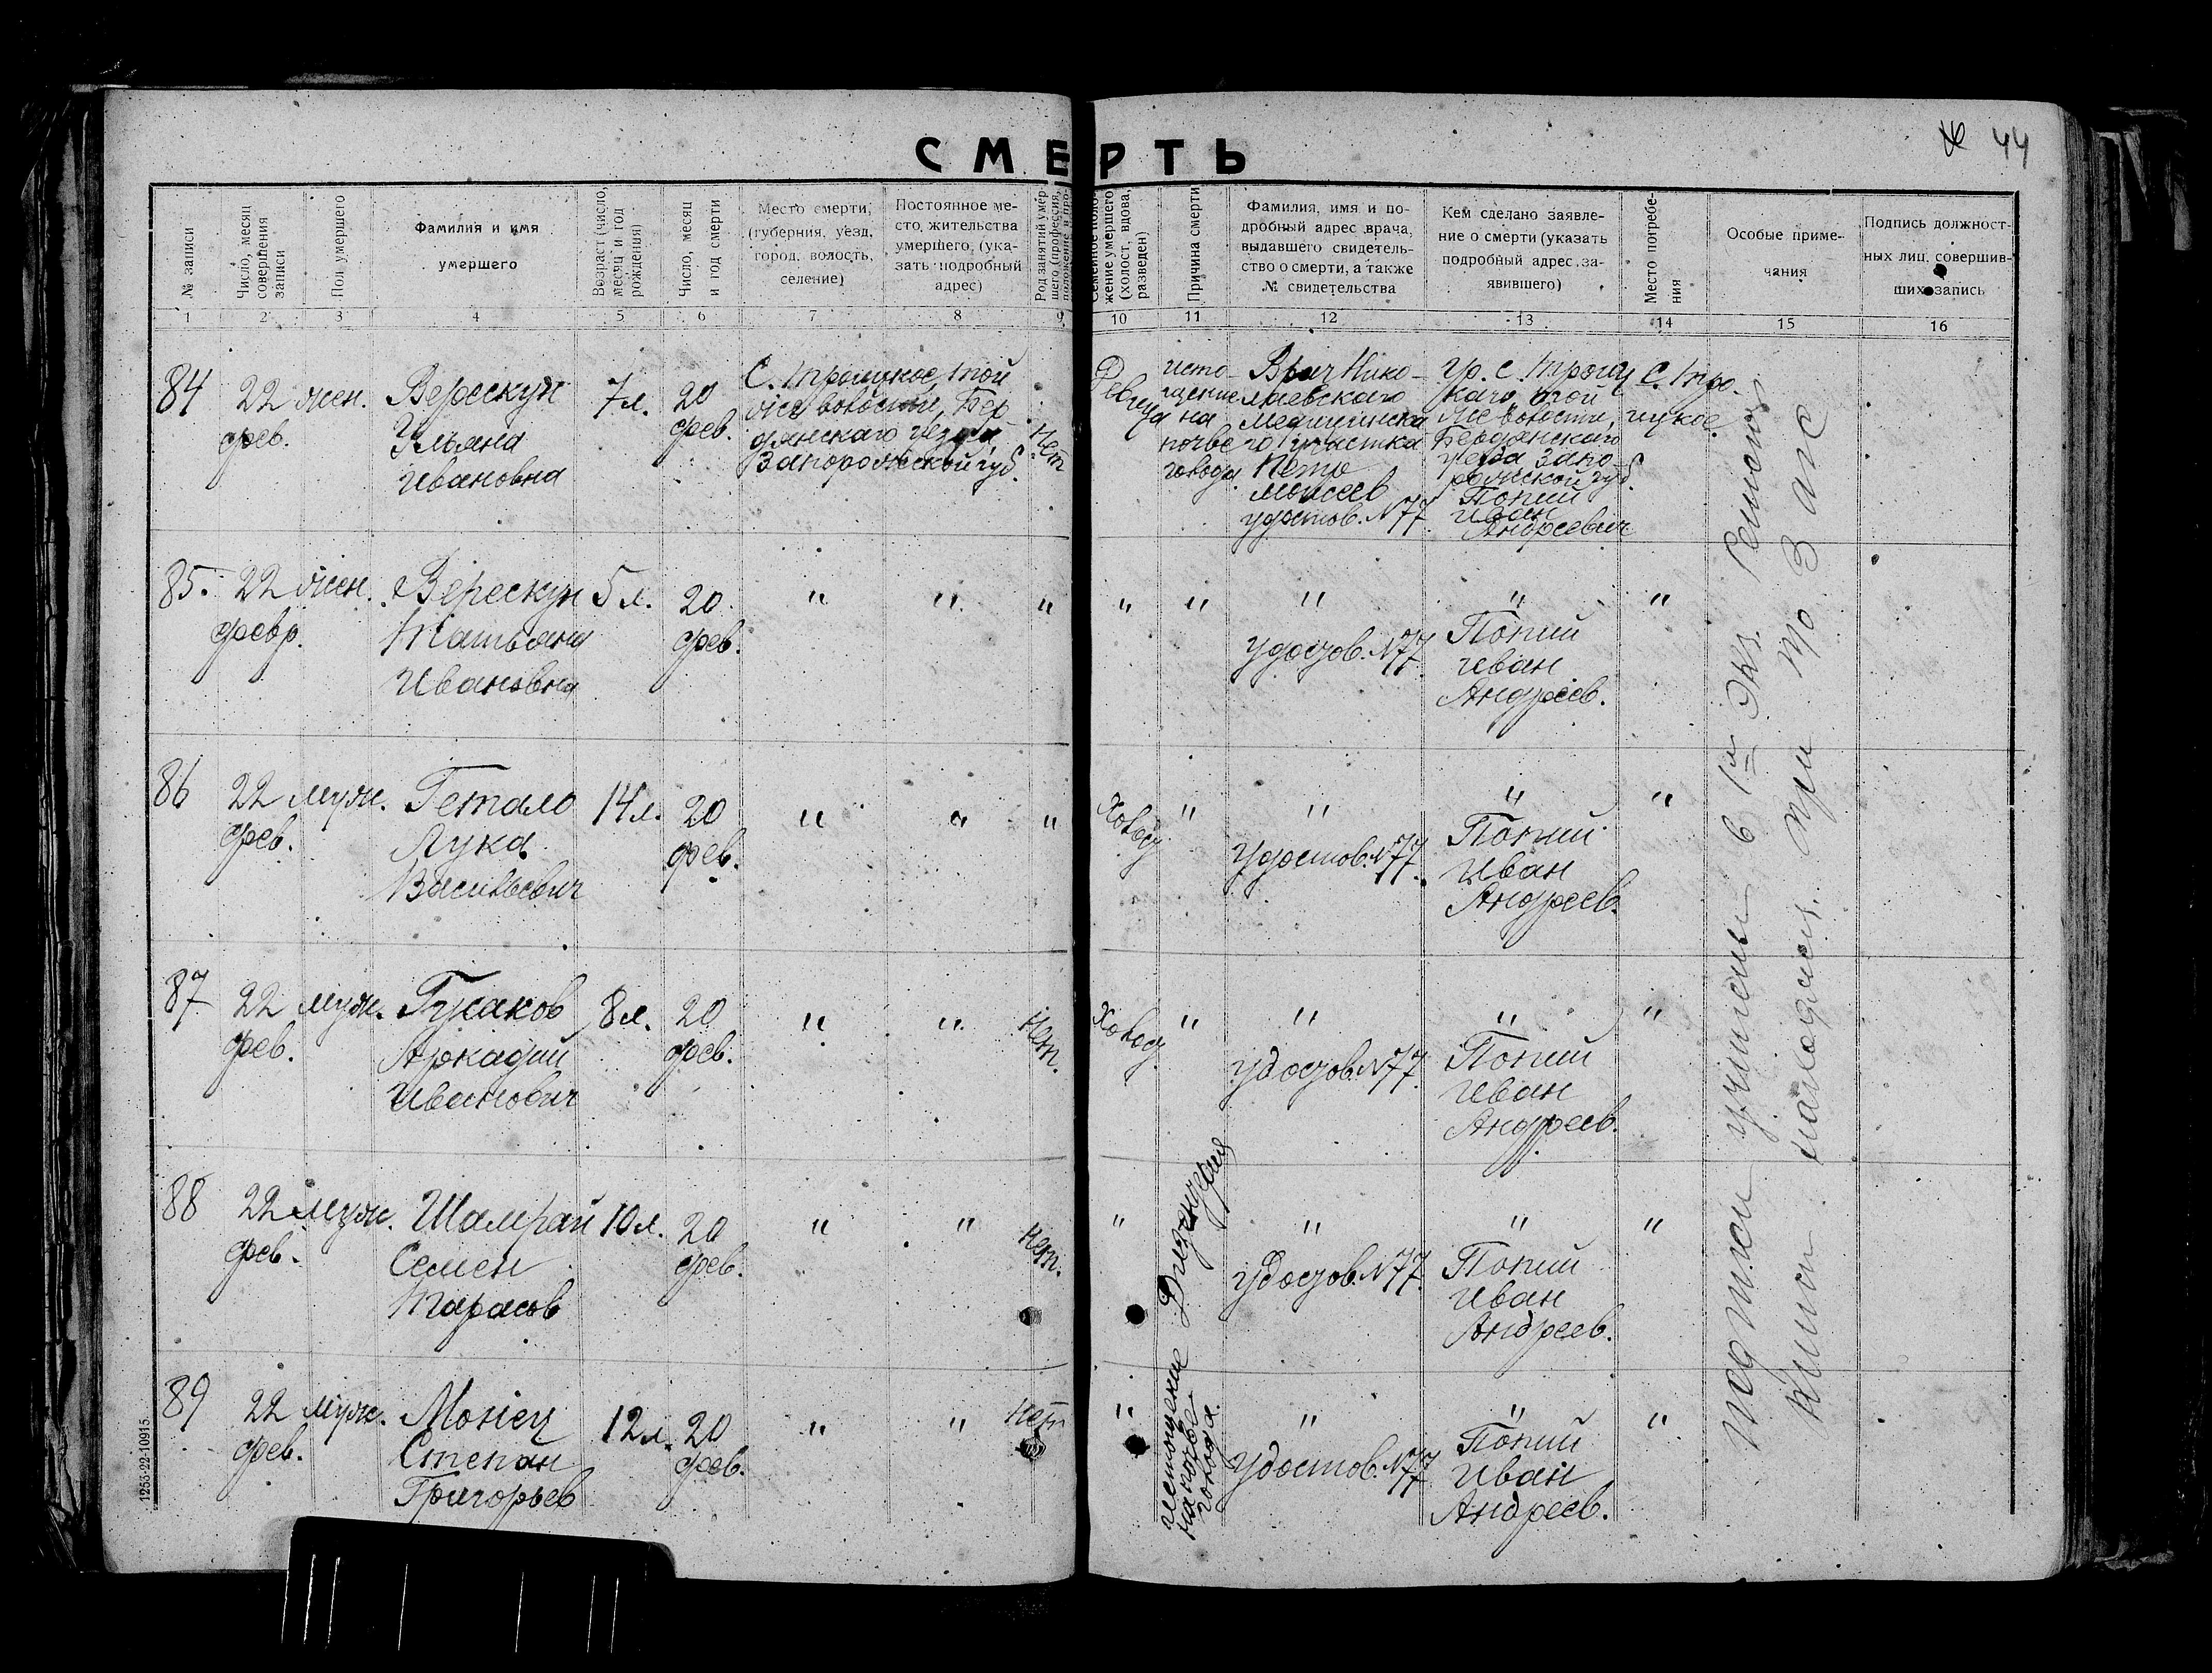 СМЕРТЬ
44
№ записи
Число, месяц
совершения
записи
Пол умершего
Фамилия и имя
умершего
Возраст (число,
месяц и год
рождения)
Число, месяц
и год смерти
Место смерти,
(губерния, уезд,
город, волость,
селение)
Постоянное ме-
сто жительства
умершего, (ука-
зать подробный
адрес)
Род занятий умер-
шего (профессия,
положение и про-
Семейное поло-
жение умершего
(холост, вдова,
разведен)
Причина смерти
Фамилия, имя и по-
дробный адрес врача,
выдавшего свидетель-
ство о смерти, а также
№ свидетельства
Кем сделано заявле-
ние о смерти (указать
подробный адрес за-
явившего)
Место погребе-
ния
Особые приме-
чания
Подпись должност-
ных лиц, совершив-
ших запись
1 2 3 4 5 6 7 8 9 10 11 12 13 14 15 16
84
22
фев.
жен.
Верескун
Ульяна
Ивановна
7 л.
20
фев.
С. Троицкое, той
же волости, Бер
дянскаго уезда
Запорожской губ.
Нет
Девица
исто-
щение
на
почве
голода
Врач Нико-
лаевского
Медицинска
го участка
Петр
Моисеев
удостов. №77
гр. с. Троиц
каго, той
же волости,
Бердянскаго
уезда Запо-
рожской губ.
Попий
Иван
Андреевич
С. Тро-
ицкое
85.
22
февр.
жен.
Верескун
Татьяна
Ивановна
5 л.
20
фев.
" " " " " " " "
удостов. №77
Попий
Иван
Андреев.
86
22
фев.
муж.
Гетало
Лука
Васильевич
14 л.
20
фев.
" " "
Холост
" " " "
Удостов. №77.
Попий
Иван
Андреев.
87
22
фев.
муж.
Гусаков
Аркадий
Иванович
8 л.
20
фев.
" "
Нет.
Холост
" " " "
Удостов. №77
Попий
Иван
Андреев.
88
22
фев.
муж.
Шамрай
Семен
Тарасов
10 л.
20
фев.
" "
Нет.
"
Дизентерия
" " "
Удостов. №77
Попий
Иван
Андреев.
89
22
фев.
муж.
Степан
Григорьев
12 л.
20
фев.
" "
Нет
"
истощение
на почве
голода.
" " "
Удостов. №77
Попий
Иван
Андреев.
Подписи учинены в 1м экз.
находящ.
1253-22-10915.